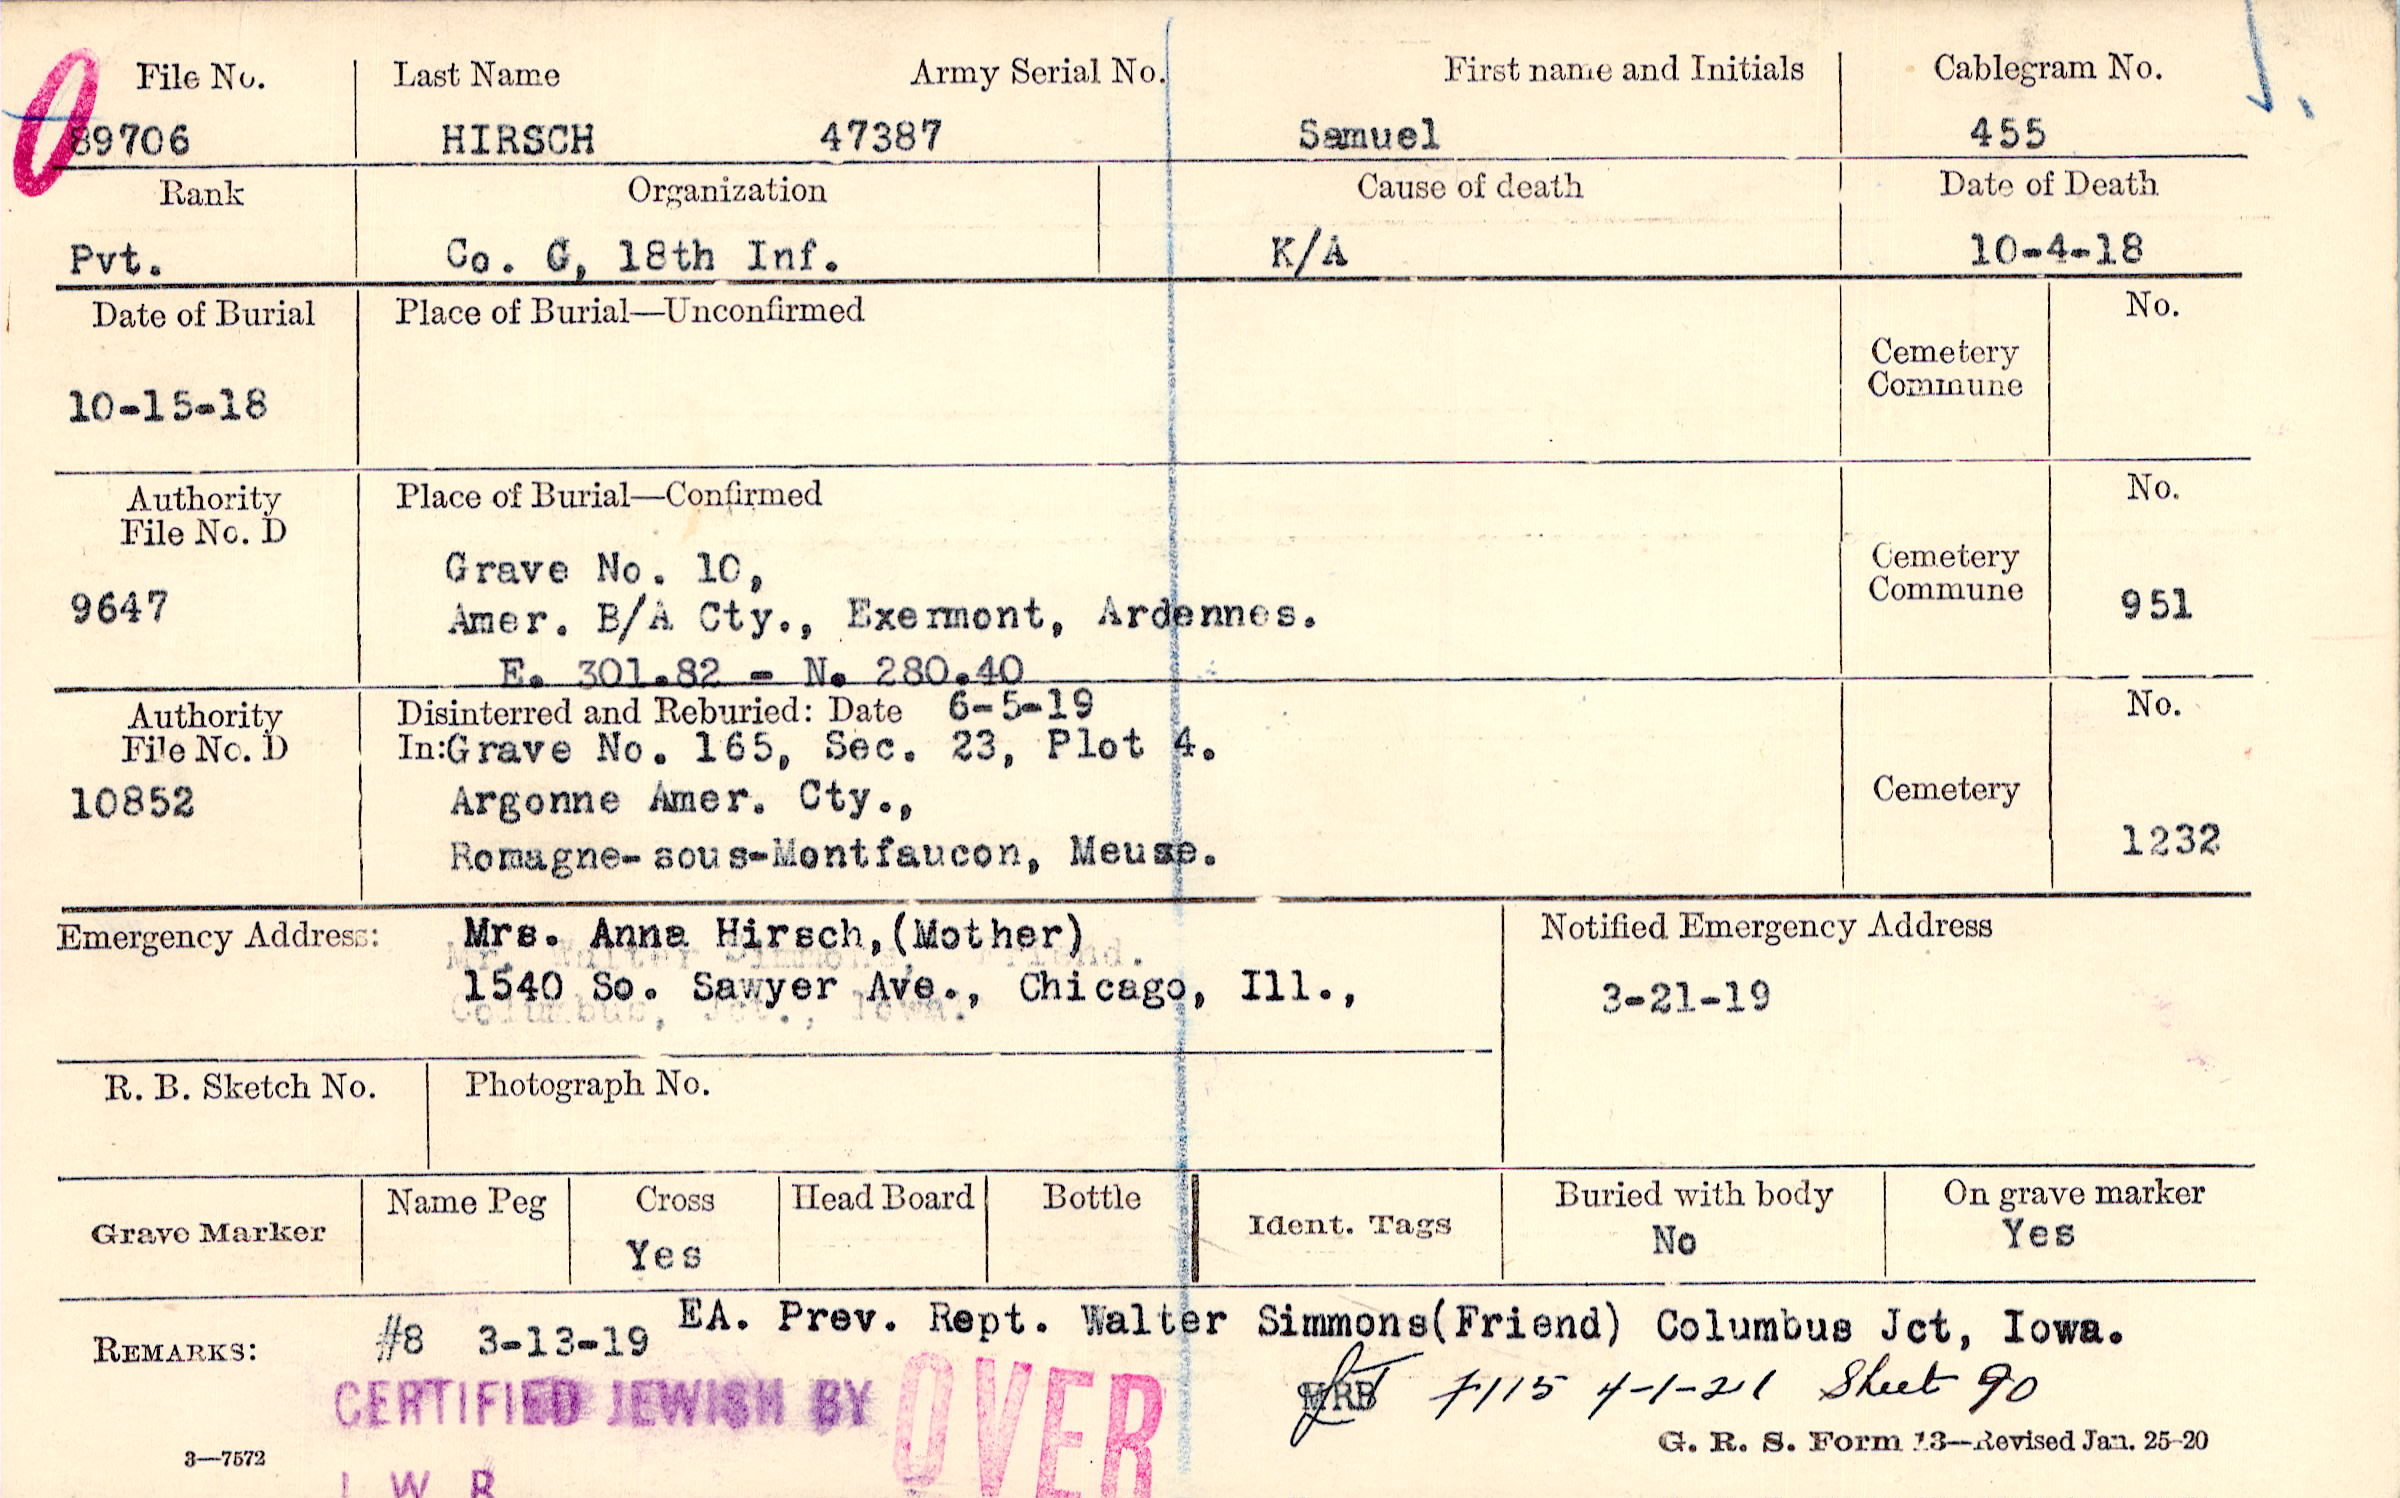 File No. Last Name Army Serial No. First name and Initials Cablegram No.
89706 HIRSCH 47387 Samuel 455
Rank Organization Cause of death Date of Death
Pvt. Co. G, 18th Inf. K/A 10-4-18
Date of Burial Place of Burial—Unconfirmed No.
Cemetery
Commune
10-15-18
Authority Place of Burial—Confirmed No.
File No. D
Grave No. 10, Cemetery
9647 Amer. B/A Cty., Exermont, Ardennes. Commune 951
E. 301.82 - N. 280.40
Authority Disinterred and Reburied: Date 6-5-19 No.
File No. D In:Grave No. 165, Sec. 23, Plot 4.
10852 Argonne Amer. Cty., Cemetery
Romagne-sous-Montfaucon, Meuse. 1232
Emergency Address: Mrs. Anna Hirsch,(Mother) Notified Emergency Address
Mr. Walter Simmons, Friend.
1540 So. Sawyer Ave., Chicago, Ill., 3-21-19
Columbus, Jct., Iowa.
R. B. Sketch No. Photograph No.
Grave Marker Name Peg Cross Head Board Bottle Ident. Tags Buried with body On grave marker
Yes No Yes
REMARKS: #8 3-13-19 EA. Prev. Rept. Walter Simmons(Friend) Columbus Jct, Iowa.
MRB 4-1-21 Sheet 90
CERTIFIED JEWISH BY OVER
3—7572 G. R. S. Form 13—Revised Jan. 25-20
J W B